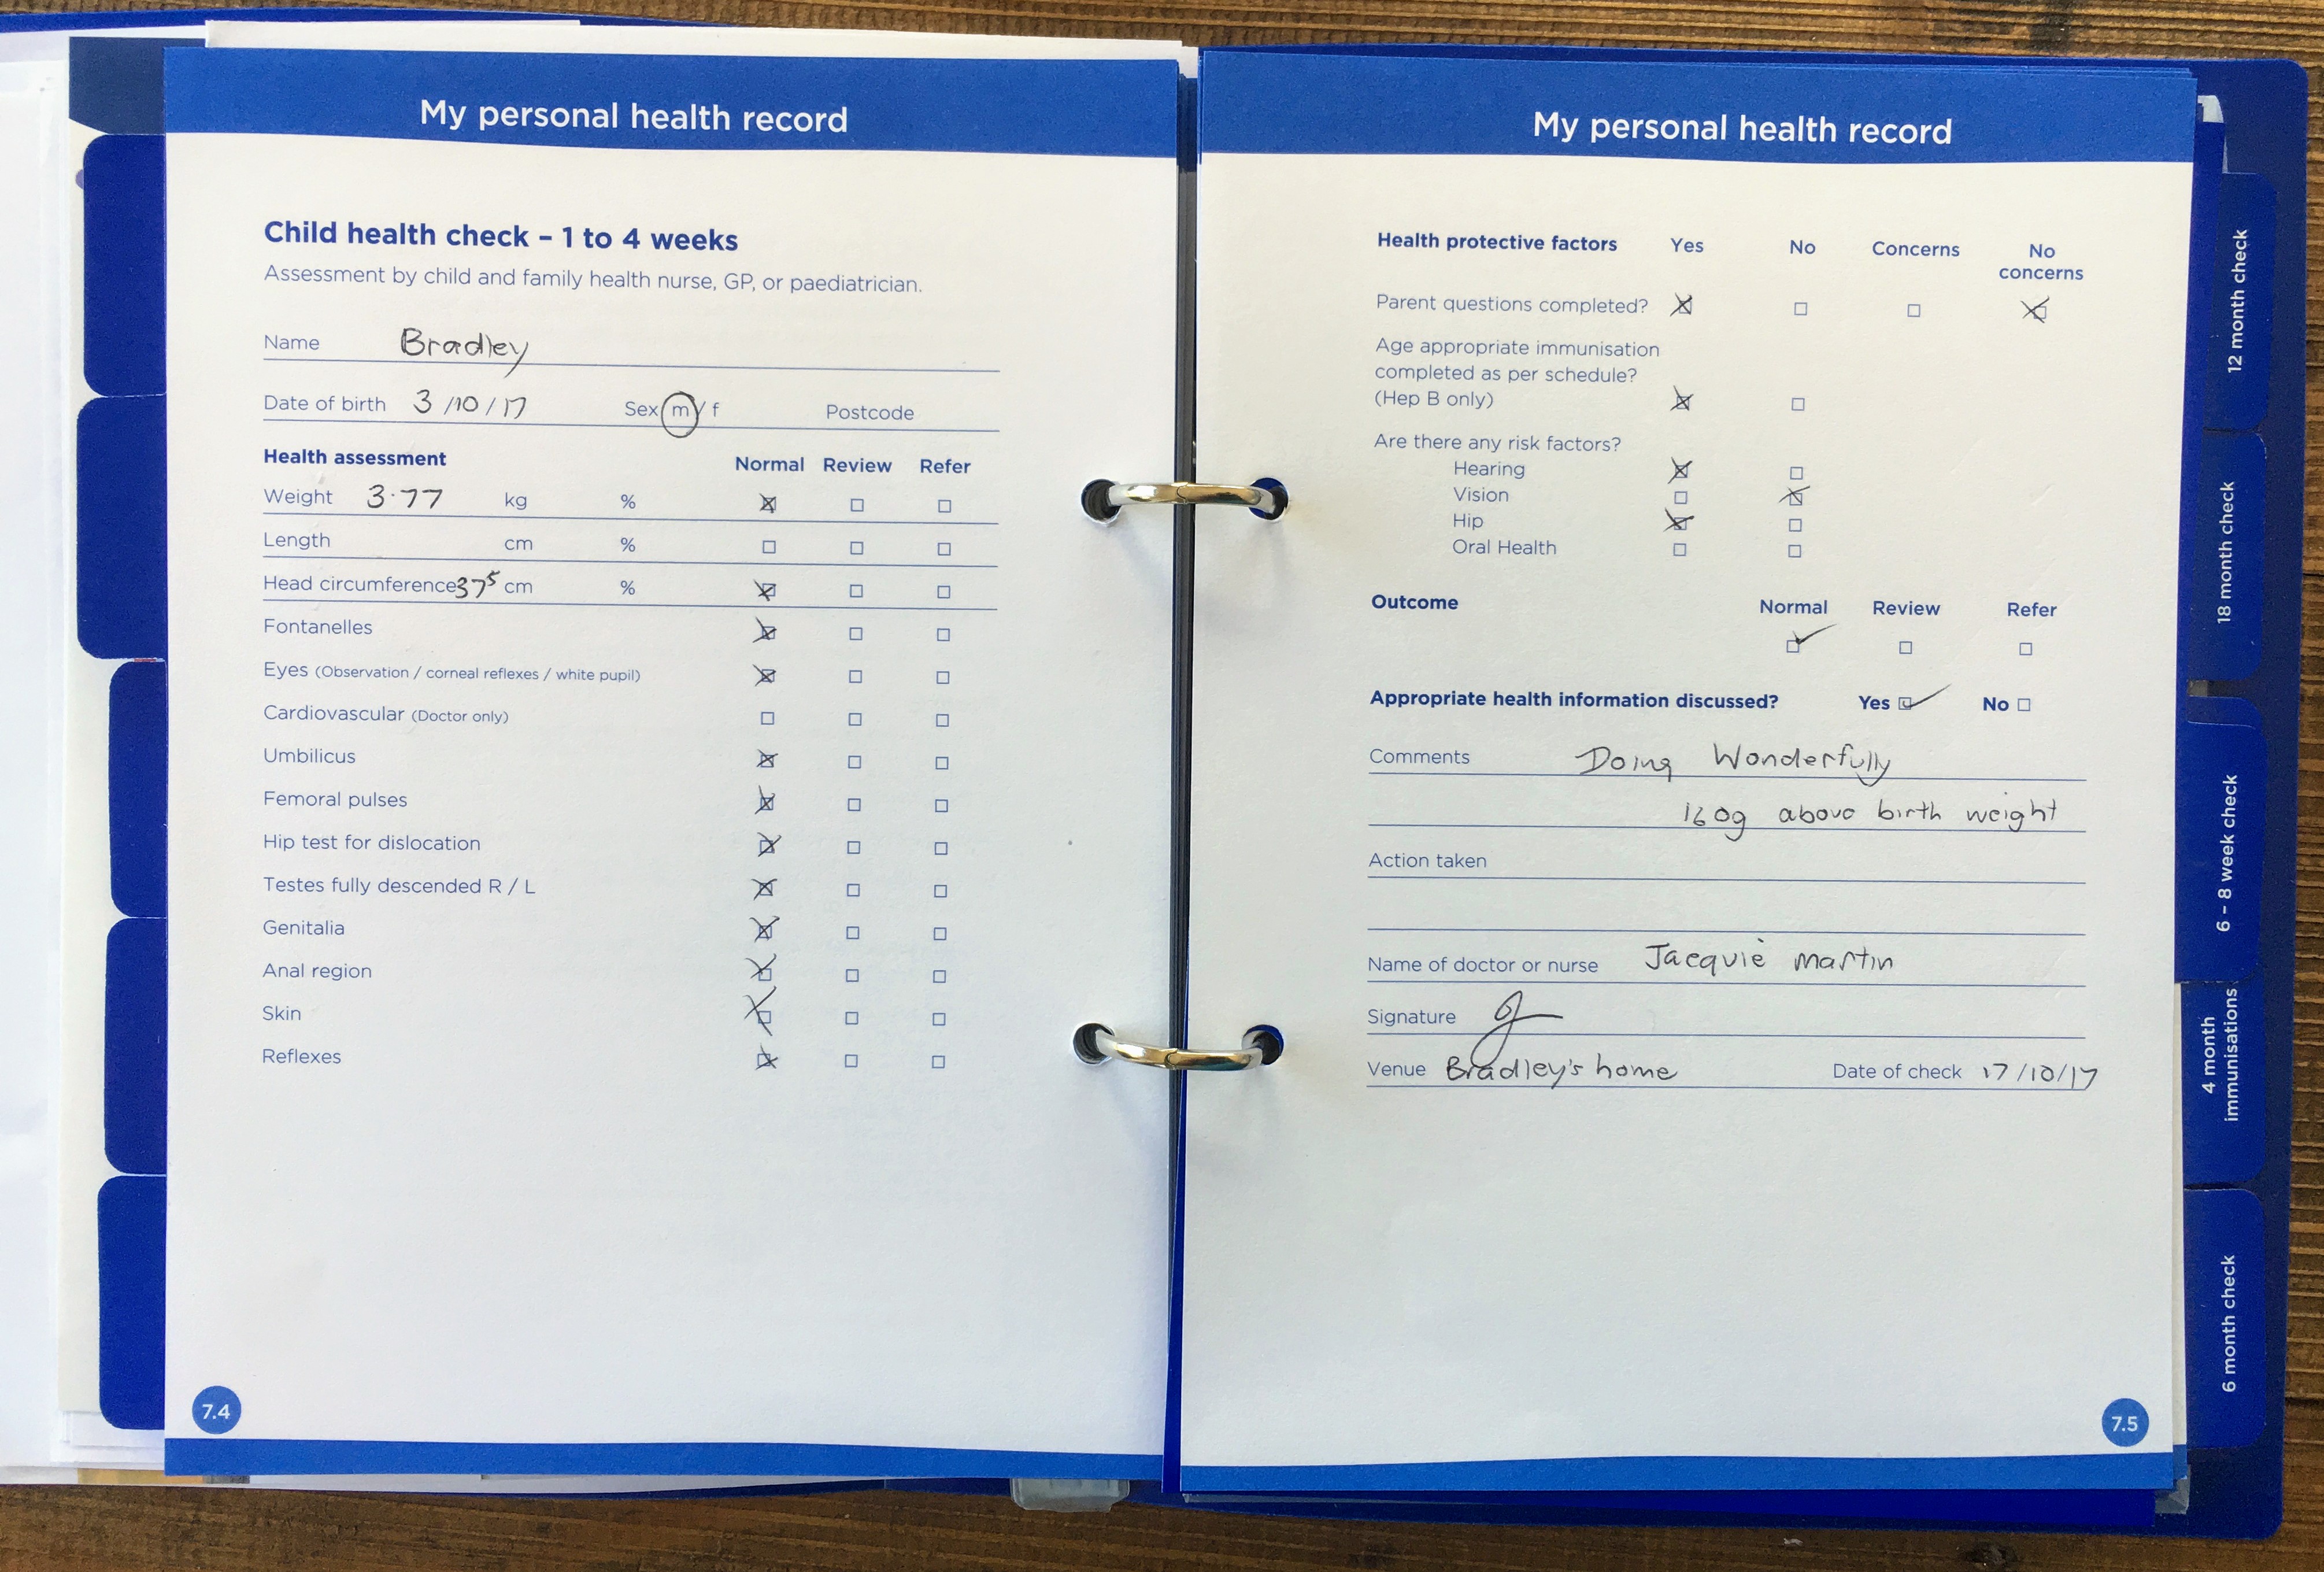 My personal health record
Child health check – 1 to 4 weeks
Assessment by child and family health nurse, GP, or paediatrician.
Name Bradley
Date of birth 3/10/17 Sex m / f Postcode
Health assessment Normal Review Refer
Weight 3.77 kg %
Length cm %
Head circumference 37⁵ cm %
Fontanelles
Eyes (Observation / corneal reflexes / white pupil)
Cardiovascular (Doctor only)
Umbilicus
Femoral pulses
Hip test for dislocation
Testes fully descended R / L
Genitalia
Anal region
Skin
Reflexes
7.4
My personal health record
Health protective factors Yes No Concerns No
concerns
Parent questions completed?
Age appropriate immunisation
completed as per schedule?
(Hep B only)
Are there any risk factors?
Hearing
Vision
Hip
Oral Health
Outcome Normal Review Refer
Appropriate health information discussed? Yes No
Comments Doing Wonderfully
160g above birth weight
Action taken
Name of doctor or nurse Jacquie Martin
Signature
Venue Bradley's home Date of check 17/10/17
7.5
12 month check
18 month check
6 – 8 week check
4 month
immunisations
6 month check